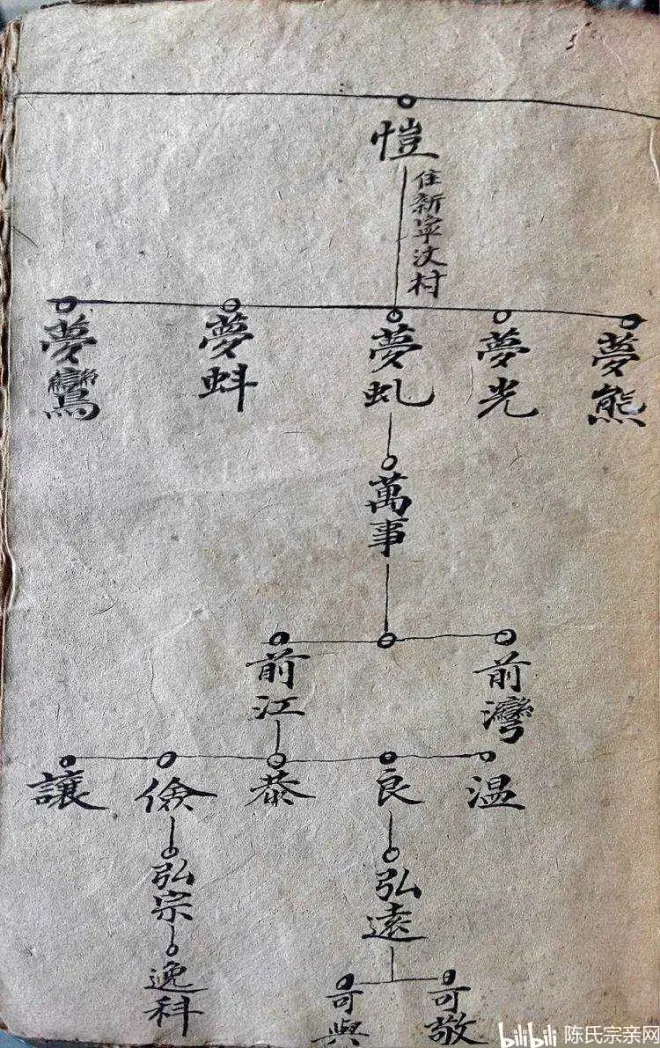 愷
住新寧汶村
夢熊
夢光
夢虬
夢蚪
夢鸞
萬事
前灣
前江
温
良
恭
儉
讓
弘遠
弘宗
可敬
可與
逸科
bilibili 陈氏宗亲网